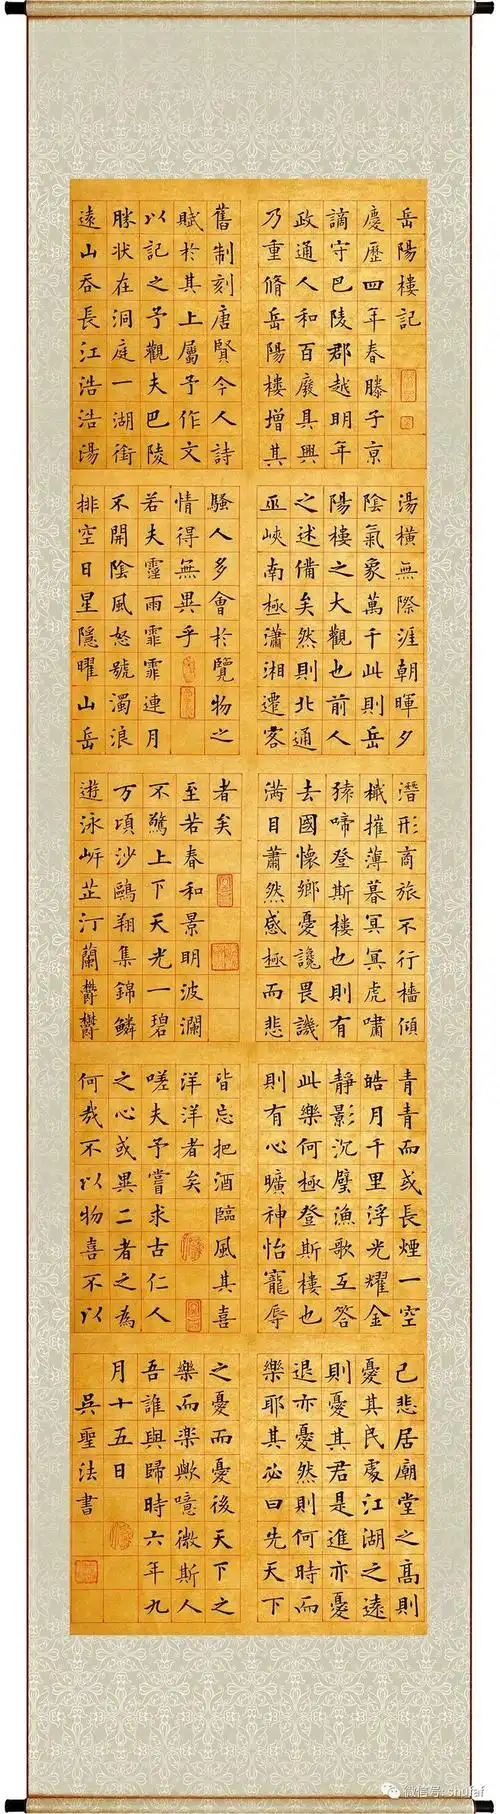 岳陽樓記
慶歷四年春滕子京
謫守巴陵郡越明年
政通人和百廢具興
乃重脩岳陽樓增其
舊制刻唐賢今人詩
賦於其上屬予作文
以記之予觀夫巴陵
勝状在洞庭一湖銜
遠山吞長江浩浩湯
湯橫無際涯朝暉夕
陰氣象萬千此則岳
陽樓之大觀也前人
之述備矣然則北通
巫峽南極瀟湘遷客
騷人多會於覽物之
情得無異乎
若夫霪雨霏霏連月
不開陰風怒號濁浪
排空日星隱曜山岳
潛形商旅不行檣傾
檝摧薄暮冥冥虎嘯
猿啼登斯樓也則有
去國懷鄉憂讒畏譏
滿目蕭然感極而悲
者矣
至若春和景明波瀾
不驚上下天光一碧
万頃沙鷗翔集錦鱗
遊泳岸芷汀蘭鬱鬱
青青而或長煙一空
皓月千里浮光耀金
靜影沉璧漁歌互答
此樂何極登斯樓也
則有心曠神怡寵辱
皆忘把酒臨風其喜
洋洋者矣
嗟夫予嘗求古仁人
之心或異二者之為
何哉不以物喜不以
己悲居廟堂之高則
憂其民處江湖之遠
則憂其君是進亦憂
退亦憂然則何時而
樂耶其必曰先天下
之憂而憂後天下之
樂而楽歟噫微斯人
吾誰與歸時六年九
月十五日
吳聖法書
微信号: shufaf